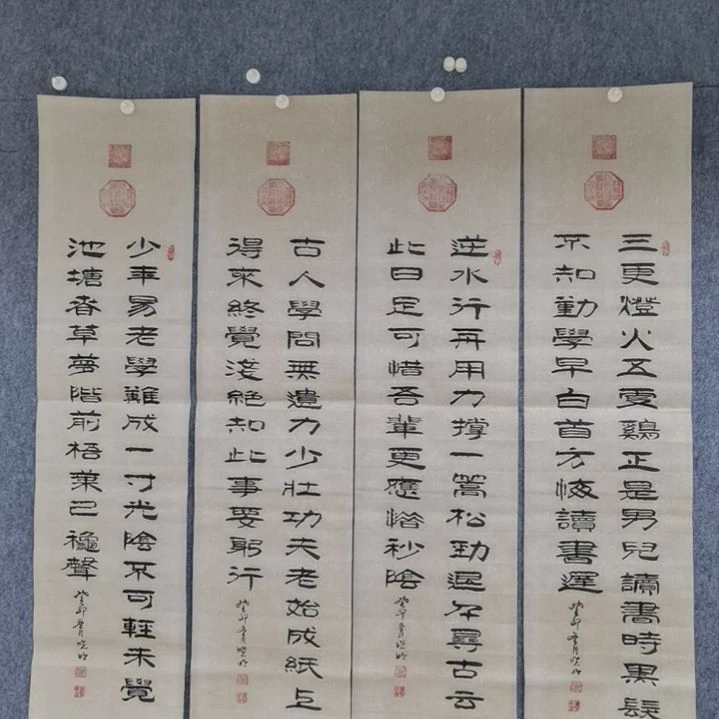 三更燈火五更鷄正是男兒讀書時黑髮
不知勤學早白首方悔讀書遲
癸卯
逆水行舟用力撐一篙松勁退千尋古云
此日足可惜吾輩更應惜秒陰
癸卯
古人學問無遺力少壯功夫老始成紙上
得來終覺淺絕知此事要躬行
癸卯
少年易老學難成一寸光陰不可輕未覺
池塘春草夢階前梧葉已穐聲
癸卯